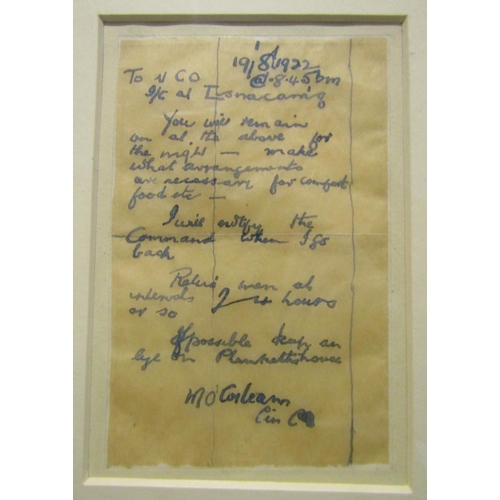 19/8/1922
@ 8.45 pm
To N CO
I/C at
You will remain
on at the above for
the night — make
what arrangements
are necessary for comfort
food etc —
I will notify the
Command when I go
back
Relieve men at
intervals 2 hours
or so
If possible keep an
eye on Plunketts house
Cin C